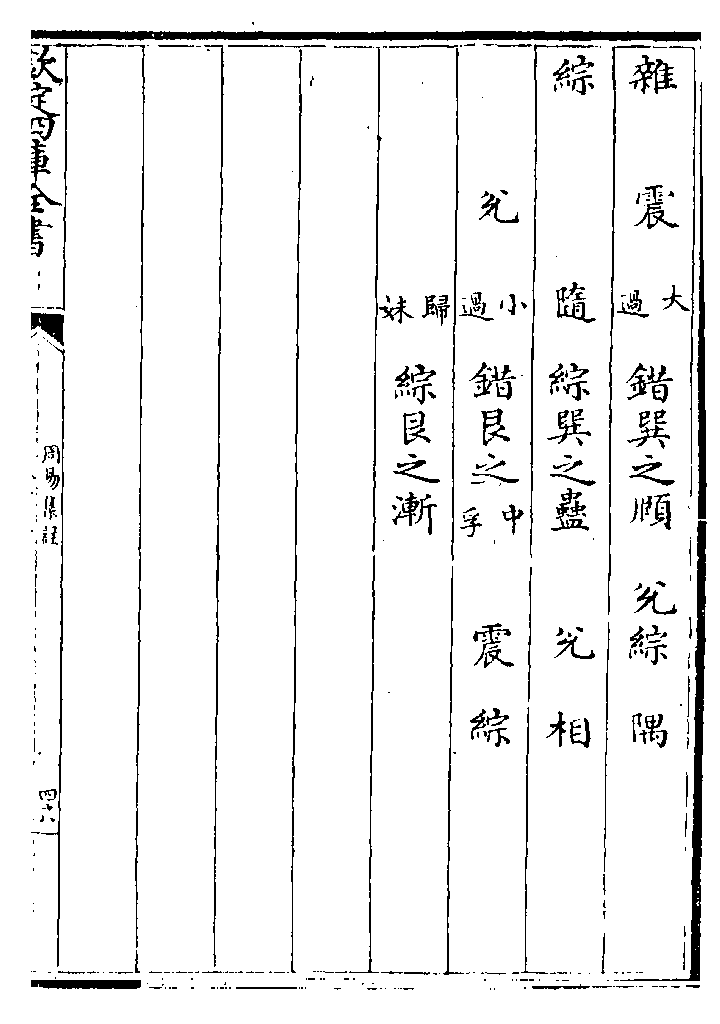 雜 震 大過 錯巽之頤 兊綜 隅
綜 隨 綜巽之蠱 兊 相
兊 小過 錯艮之中孚 震 綜
歸妹 綜艮之漸
欽定四庫全書 周易集註 四六